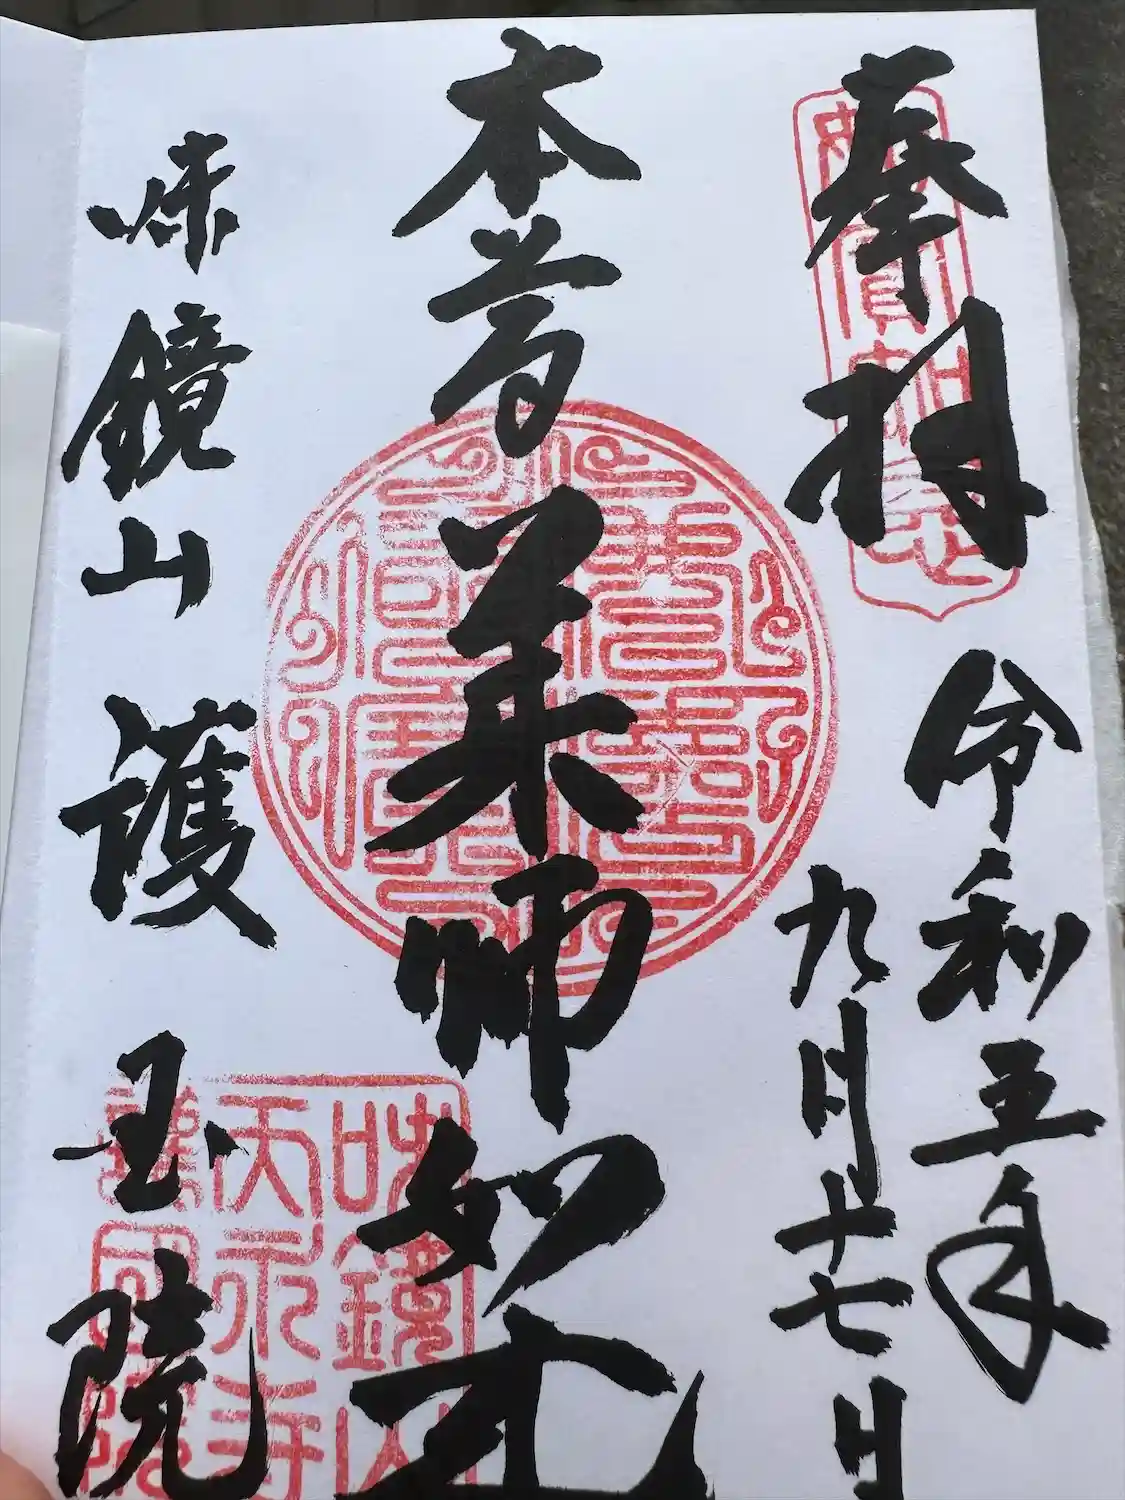 奉拝
令和五年
九月十七日
本尊薬師如来
味鏡山 護国院
味鏡山
天永寺
護國院